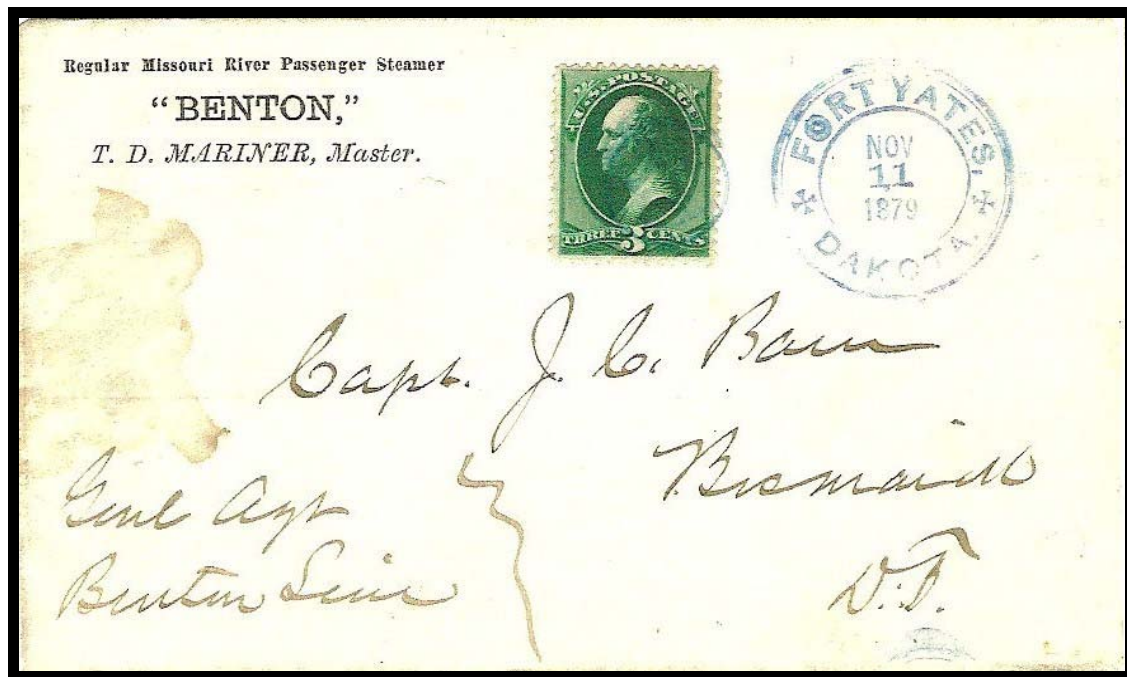 Regular Missouri River Passenger Steamer
"BENTON,"
T. D. MARINER, Master.
U.S. POSTAGE
THREE 3 CENTS
FORT YATES,
NOV
11
1879
DAKOTA.
Capt. J. C. Barr
Bismarck
D.T.
Genl Agt
Benton Line